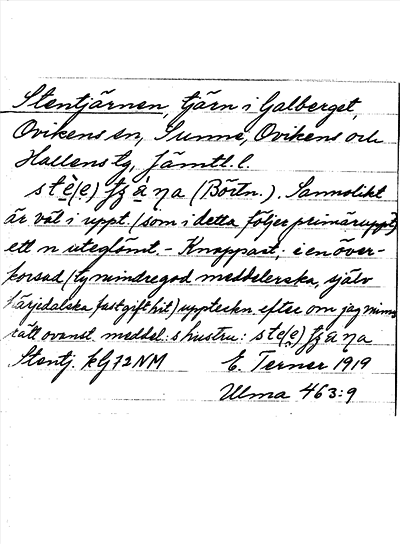 Stentjärnen, tjärn i Galberget,
Ovikens sn, Sunne, Ovikens och
Hallens tg, Jämtl. l.
stè(e)tʃàŋa (Börtn.). Sannolikt
är väl i uppt. (som i detta följer primäruppt)
ett n uteglömt. - Knappast; i en över-
korsad (ty mindre god meddelerska, själv
härjedalska fast gift hit) uppteckn. efter om jag minns
rätt ovanst. meddel:s hustru: ste(e)tʃàŋa
Stentj. kG72NM E. Terner 1919
Ulma 463:9